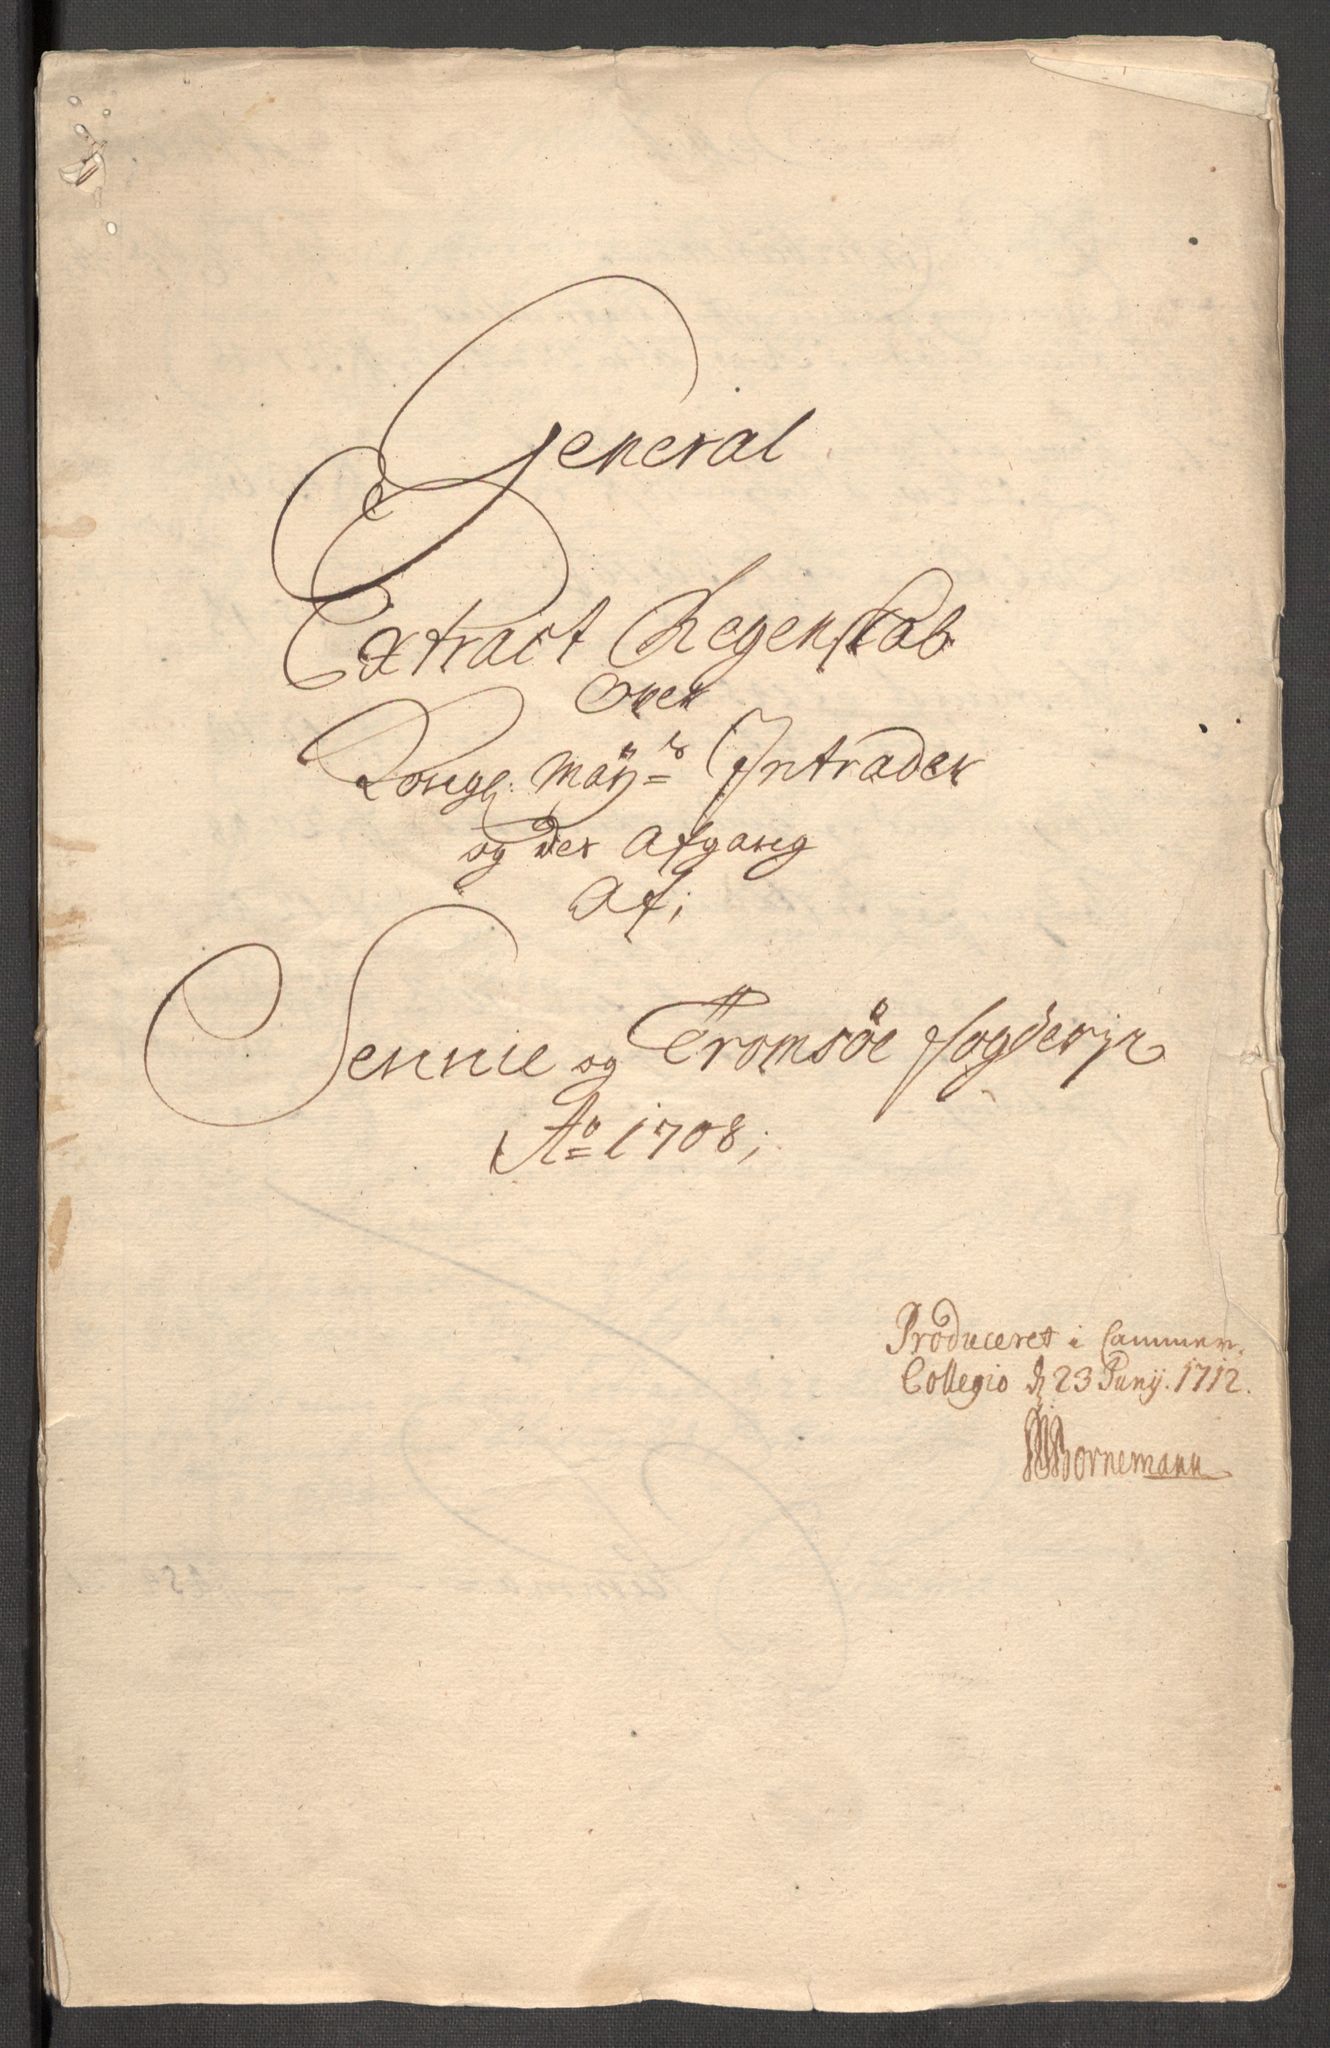 General
Extract Regenskab
Over
Kongl: May:ts Intrader
og des Afgang
Af;
Sennie og Tromsøe fogderje
Ao 1708;
Produceret i Cammer-
Collegio d 23 Junij. 1712.
Bornemann